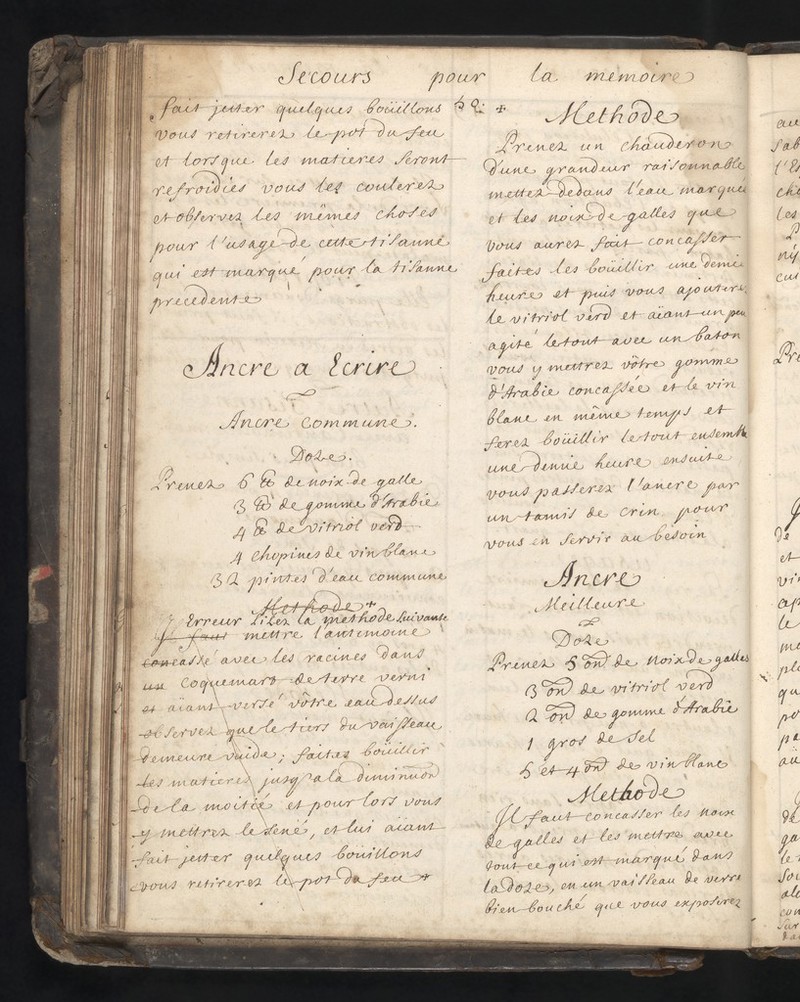 Secours pour la memoire
fait jetter quelques boüillons
vous retirerez le pot du feu
et lorsque les matieres seront
refroidies vous les coulerez
et observez les mêmes choses
pour l'usage de cette tisanne
qui est marqué pour la tisanne
precedente
Ancre a Ecrire
Ancre commune.
Doze.
Prenez 6 ℔ de noix de galle
3 ℔ de gomme d'Arabie
4 ℔ de vitriol verd
4 chopines de vin blanc
32 pintes d'eau commune
Methode +
Erreur Lizez la methode suivante
Il faut mettre l'antimoine
concassé avec les racines dans
un coquemart de terre verni
et aïant versé vôtre eau dessus
observez que le tiers du vaisseau
demeure vuide; faites boüillir
les matieres jusqu'a la diminution
de la moitié et pour lors vous
y mettrez le sené, et lui aïant
fait jetter quelques boüillons
vous retirerez le pot du feu +
+
Methode
Prenez un chauderon
d'une grandeur raisonnable
mettez dedans l'eau marquée
et les noix de galles que
vous aurez fait concasser
faites les boüillir une demie
heure et puis vous ajouterez
le vitriol verd et aïant un peu
agité le tout avec un baton
vous y mettrez vôtre gomme
d'Arabie concassée et le vin
blanc en même temps et
ferez boüillir le tout ensemble
une demie heure ensuite
vous passerez l'ancre par
un tamis de crin pour
vous en servir au besoin
Ancre
Meilleure
Doze
Prenez 5 on de noix de galles
3 on de vitriol verd
2 on de gomme d'Arabie
1 gros de sel
5 et 4 on de vin blanc
Methode
Il faut concasser les noix
de galles et les mettre avec
tout ce qui est marqué dans
la doze, en un vaisseau de verre
bien bouché que vous exposerez